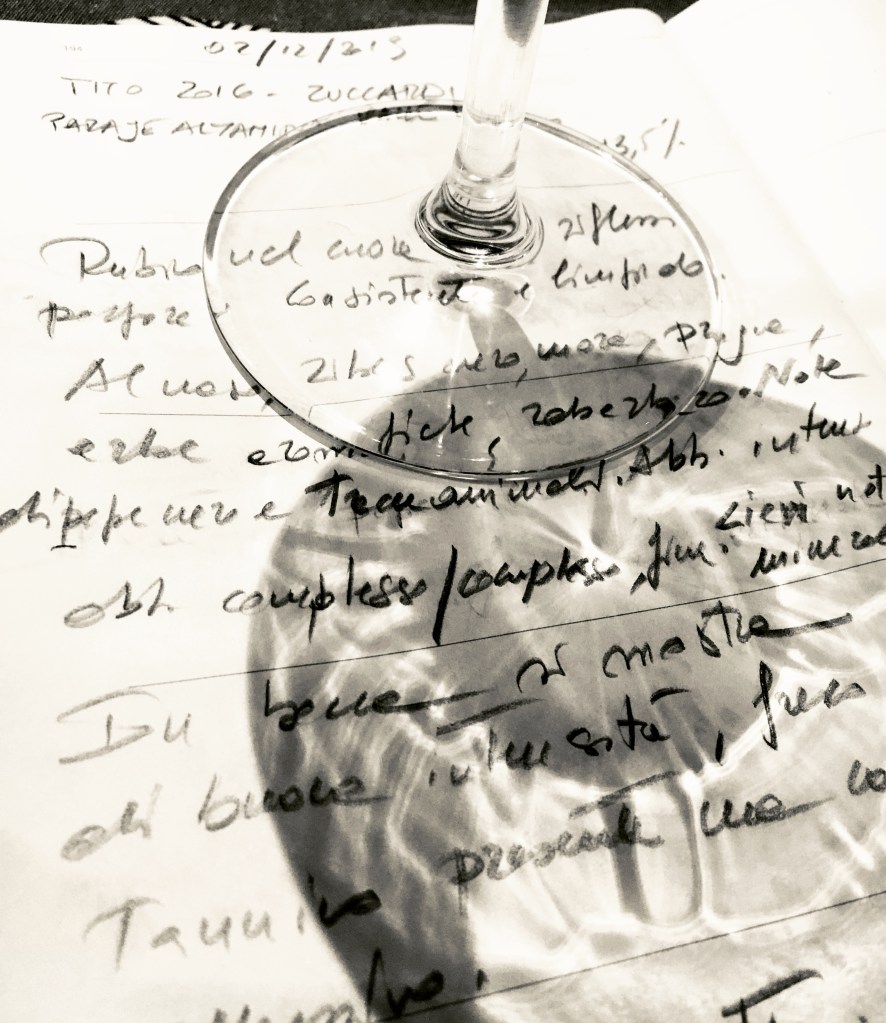 02/12/219
TITO 2016 - ZUCCARDI
PARAJE ALTAMIRA 13,5%
Rubino nel cuore riflessi
porpora. Consistente e limpido.
Al naso, ribes nero, more, prugne,
erbe aromatiche, rabarbaro. Note
di pepe nero e Abb. intenso
abb. complesso/complesso, fine. Lievi not
mineral
In bocca si mostra
di buona intensità, fresco
Tannino presente ma no